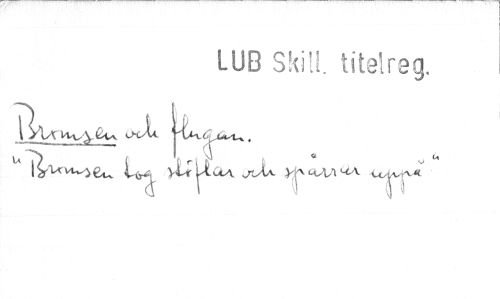 LUB Skill. titelreg.
Bromsen och flugan.
"Bromsen tog stöflar och spårrar uppå"